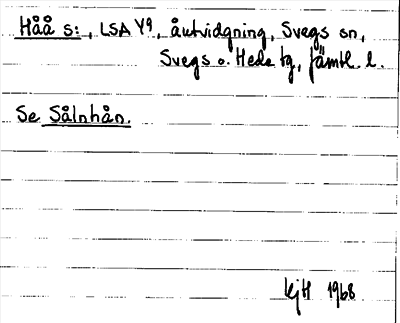 Håå s:, LSA Y9, åutvidgning, Svegs sn,
Svegs o. Heds tg, Jämtl. l.
Se Sålnhån.
1968